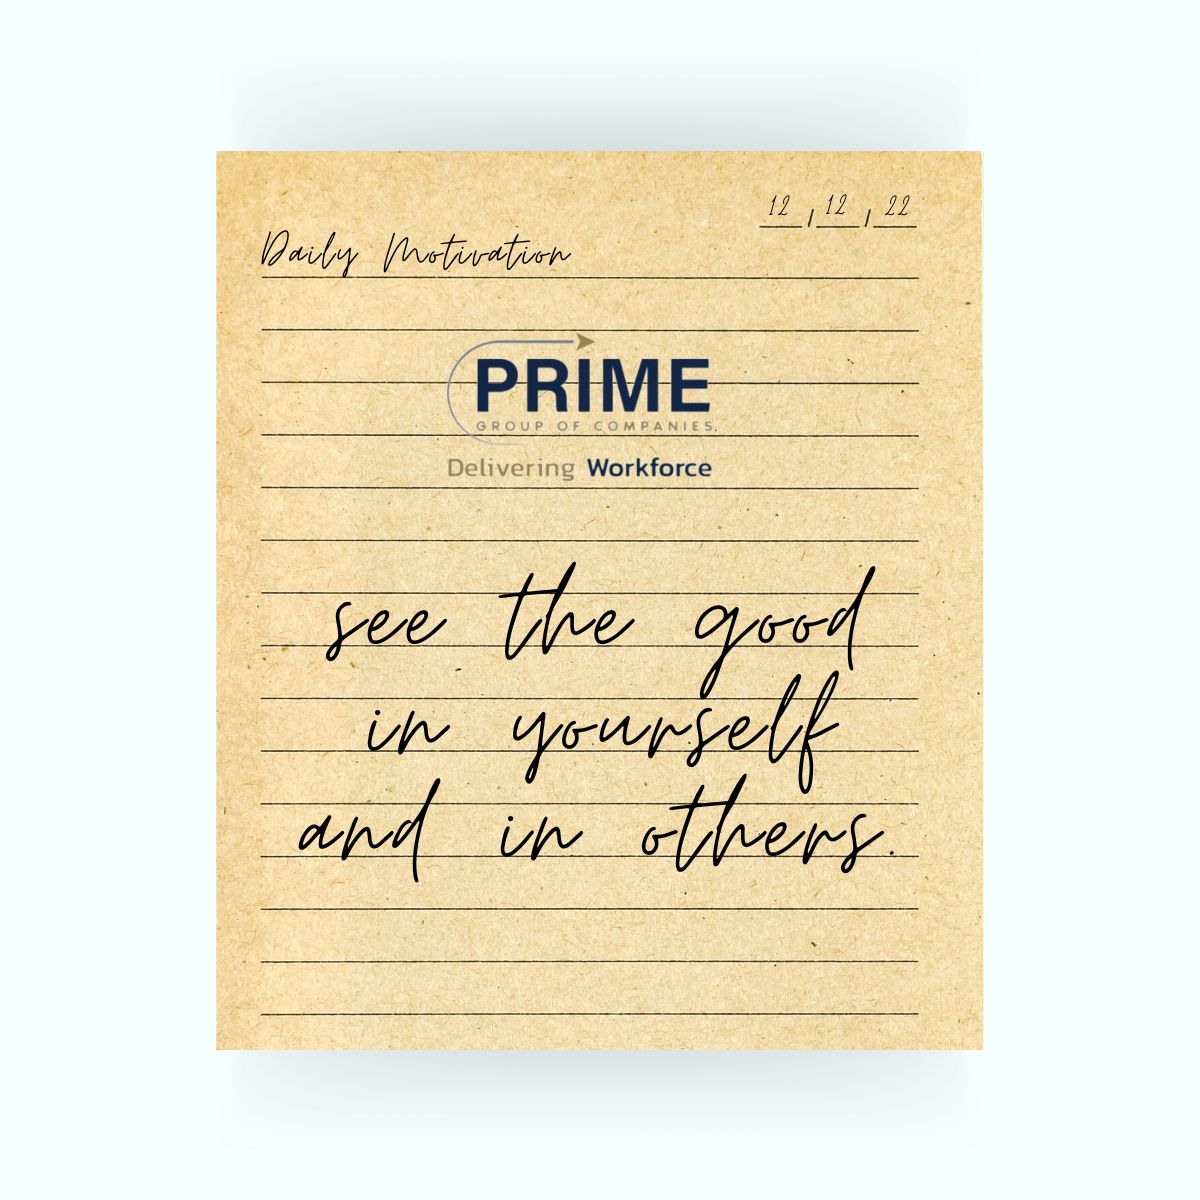 12 / 12 / 22
Daily Motivation
PRIME
GROUP OF COMPANIES.
Delivering Workforce
see the good
in yourself
and in others.